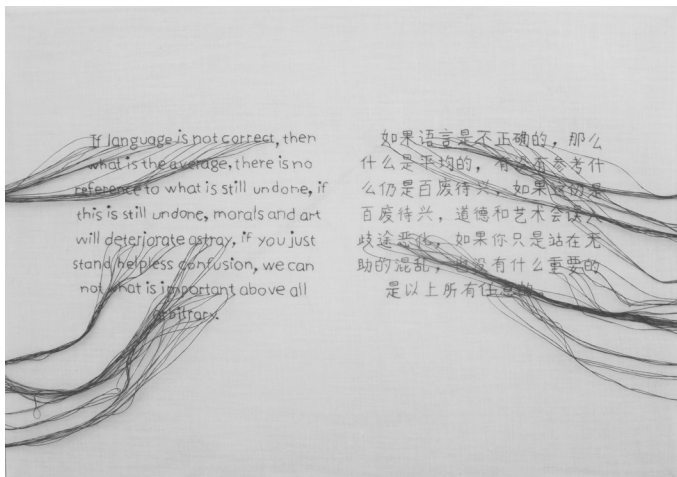 If language is not correct, then
what is the average, there is no
reference to what is still undone, if
this is still undone, morals and art
will deteriorate astray, if you just
stand helpless confusion, we can
not what is important above all
arbitrary.
如果语言是不正确的，那么
什么是平均的，有没有参考什
么仍是百废待兴，如果这仍是
百废待兴，道德和艺术会误入
歧途恶化，如果你只是站在无
助的混乱，也没有什么重要的
是以上所有任意的。